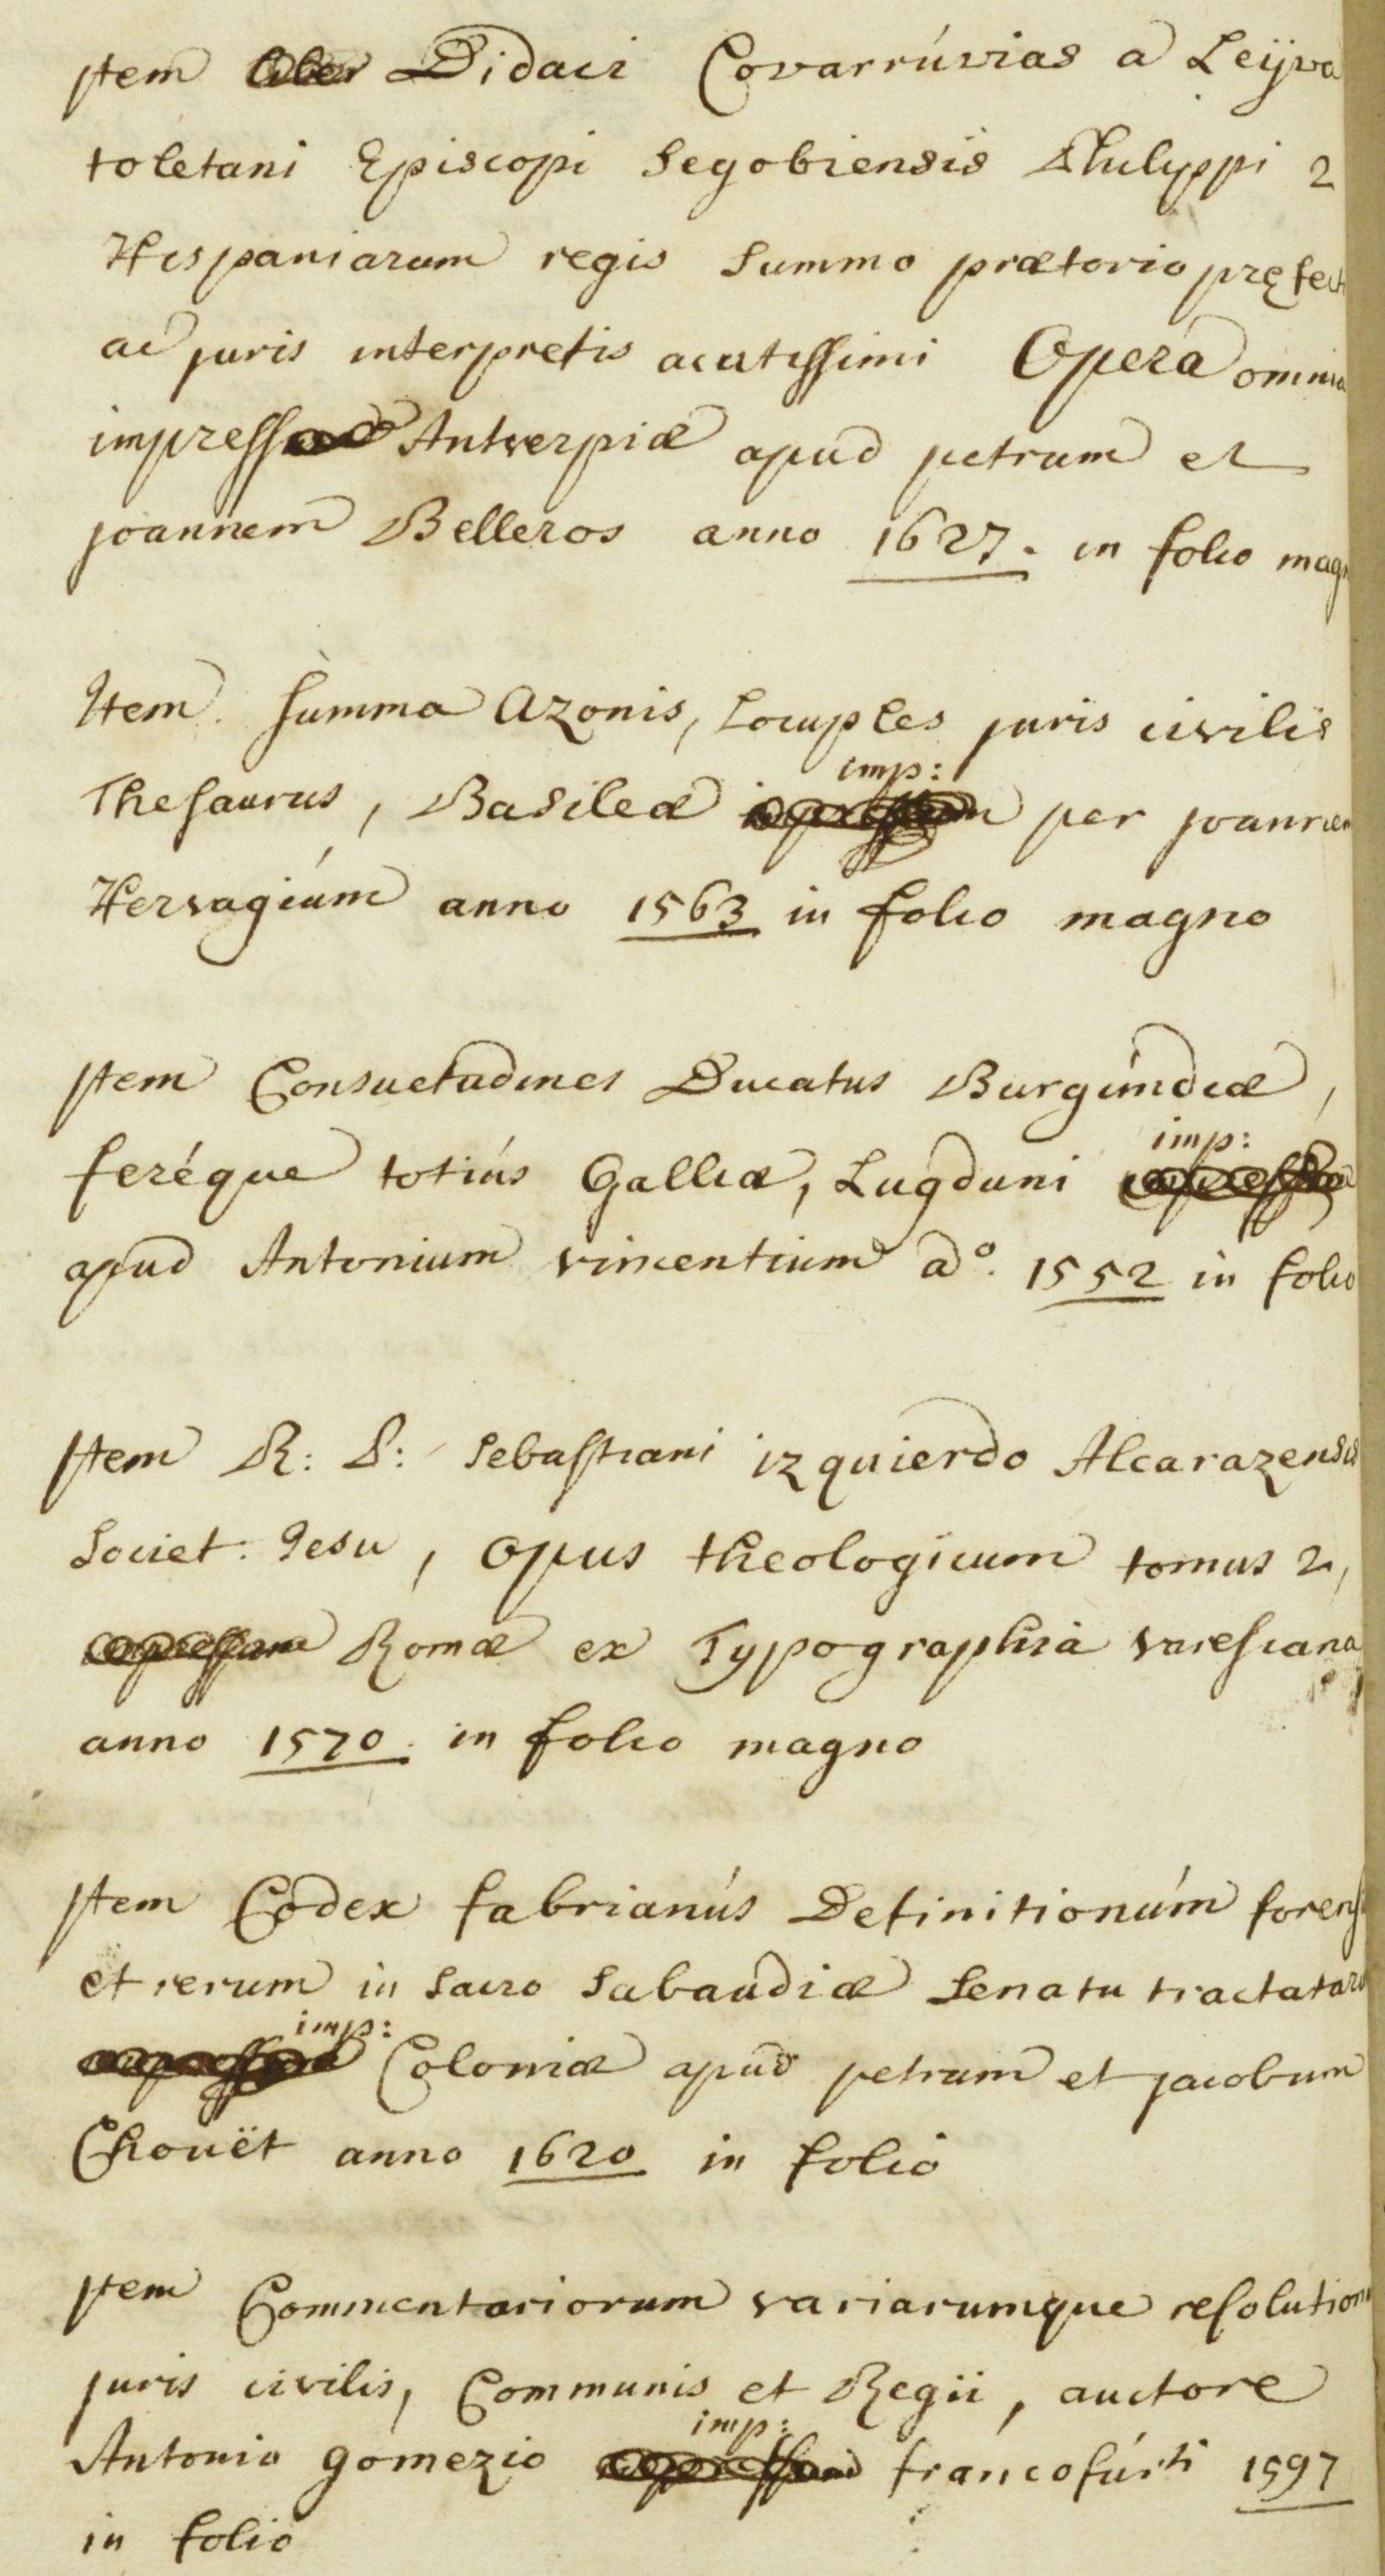 Item Didaci Covarrúvias a Leÿva
toletani Episcopi Segobiensis Philyppi 2
Hispaniarum regis Summo prætorio pręfect
ac juris interpretis acutissimi Opera omnia
impress Antverpiæ apud petrum et
joannem Belleros anno 1627. in folio magn
Item Summa Azonis, Locuples juris civilis
Thesaurus, Basileæ imp: per joannem
Hervagiúm anno 1563 in folio magno
Item Consuetudines Ducatus Burgúndiæ,
feréque totiús Galliæ, Lugduni imp:
apud Antonium vincentium aº. 1552 in folio
Item R: P: Sebastiani izquierdo Alcarazensis
Societ: Jesu, Opus theologicum tomus 2,
Romæ ex Typographia varesiana
anno 1570. in folio magno
Item Codex fabrianús Definitionúm forens
et rerum in Sacro Sabaudiæ Senatu tractataru
imp: Coloniæ apud petrum et jacobum
Chouët anno 1620 in folio
Item Commentariorum variarumque resolution
juris civilis, Communis et Regii, auctore
Antonio gómezio imp: francofúrti 1597
in folio